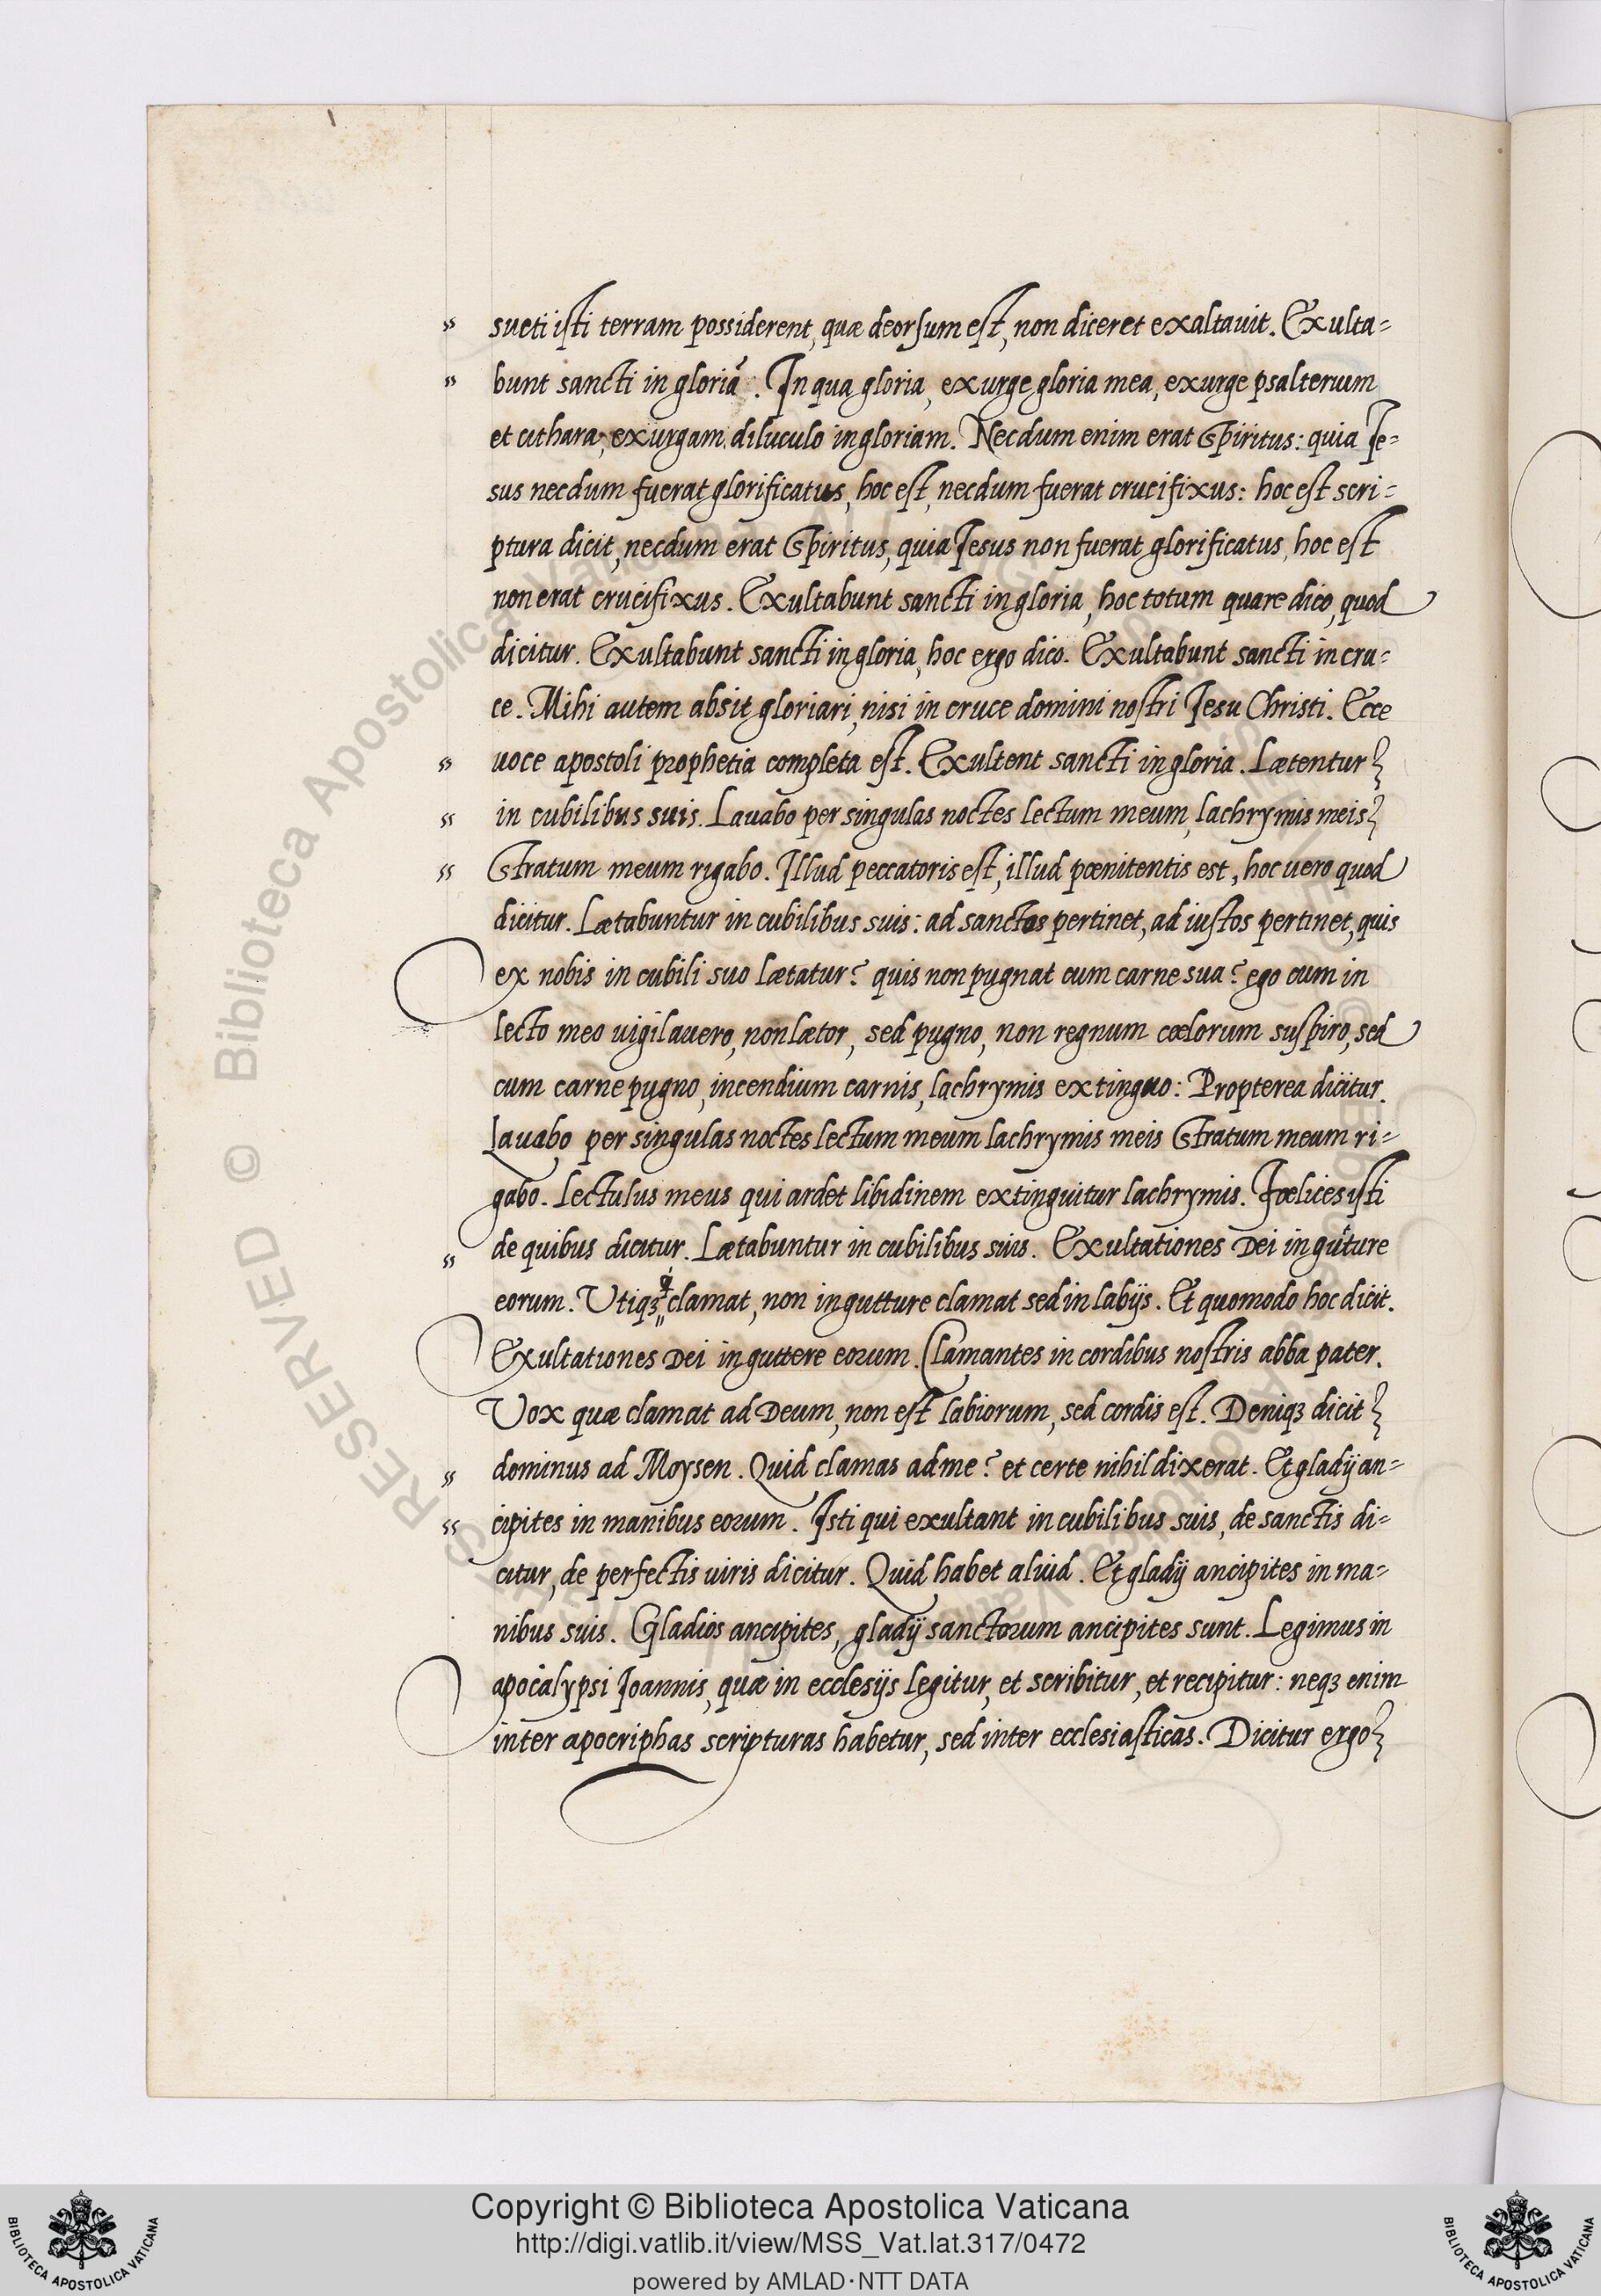 sueti isti terram possiderent, quæ deorsum est, non diceret exaltauit. Exulta=
bunt sancti in gloriâ. In qua gloria, exurge gloria mea, exurge psalterium
et cithara, exurgam diluculo in gloriam. Necdum enim erat Spiritus: quia Ie=
sus necdum fuerat glorificatus, hoc est, necdum fuerat crucifixus: hoc est scri=
ptura dicit, necdum erat Spiritus, quia Jesus non fuerat glorificatus, hoc est
non erat crucifixus. Exultabunt sancti in gloria, hoc totum quare dico, quod
dicitur. Exultabunt sancti in gloria, hoc ergo dico. Exultabunt sancti in cru=
ce. Mihi autem absit gloriari, nisi in cruce domini nostri Jesu Christi. Ecce
uoce apostoli prophetia completa est. Exultent sancti in gloria. Lætentur
in cubilibus suis. Lauabo per singulas noctes lectum meum, lachrymis meis
Stratum meum rigabo. Illud peccatoris est, illud pœnitentis est, hoc uero quod
dicitur. Lætabuntur in cubilibus suis: ad sanctos pertinet, ad iustos pertinet, quis
ex nobis in cubili suo lætatur? quis non pugnat cum carne sua? ego cum in
lecto meo uigilauero, non lætor, sed pugno, non regnum cœlorum suspiro, sed
cum carne pugno, incendium carnis, lachrymis extinguo: Propterea dicitur.
Lauabo per singulas noctes lectum meum lachrymis meis Stratum meum ri=
gabo. Lectulus meus qui ardet libidinem extinguitur lachrymis. Fœlices isti
de quibus dicitur. Lætabuntur in cubilibus suis. Exultationes Dei in guture
eorum. Utiqꝫ q clamat, non in gutture clamat sed in labijs. Et quomodo hoc dicit.
Exultationes Dei in guttere eorum. Clamantes in cordibus nostris abba pater.
Vox quæ clamat ad Deum, non est labiorum, sed cordis est. Deniqꝫ dicit
dominus ad Moysen. Quid clamas ad me? et certe nihil dixerat. Et gladij an=
cipites in manibus eorum. Isti qui exultant in cubilibus suis, de sanctis di=
citur, de perfectis uiris dicitur. Quid habet aliud. Et gladij ancipites in ma=
nibus suis. Gladios ancipites, gladij sanctorum ancipites sunt. Legimus in
apocalypsi Joannis, quæ in ecclesijs legitur, et scribitur, et recipitur: neqꝫ enim
inter apocriphas scripturas habetur, sed inter ecclesiasticas. Dicitur ergo
Copyright © Biblioteca Apostolica Vaticana
http://digi.vatlib.it/view/MSS_Vat.lat.317/0472
powered by AMLAD·NTT DATA
BIBLIOTECA APOSTOLICA VATICANA
BIBLIOTECA APOSTOLICA VATICANA